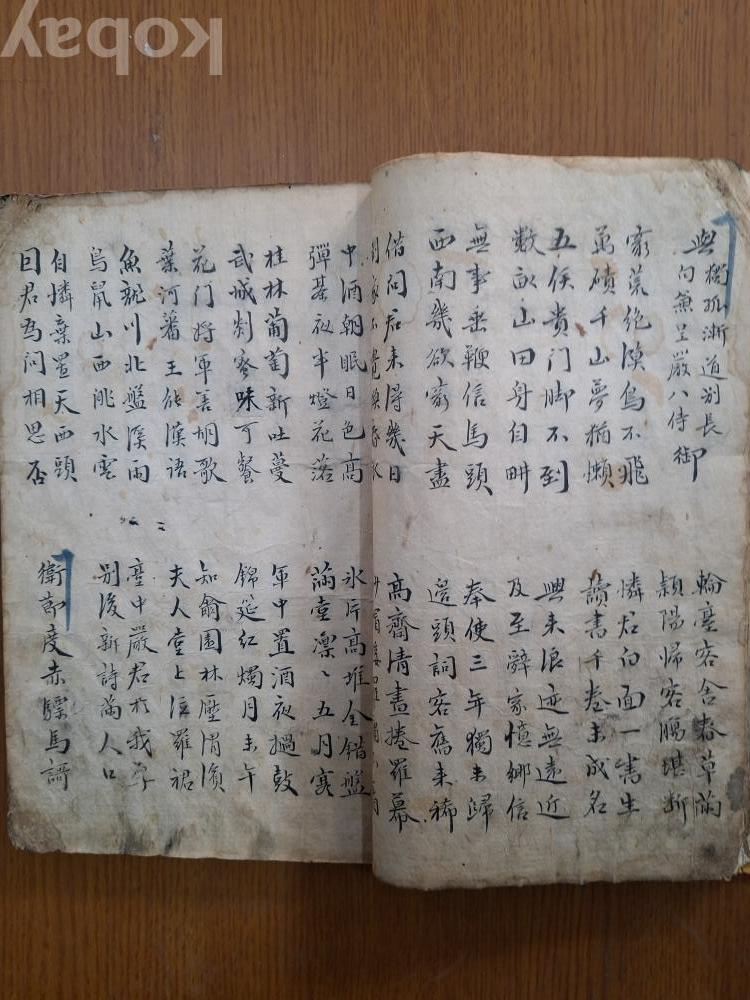 與獨孤漸道別長
句兼呈嚴八侍御
輪臺客舍春草滿
潁陽歸客膓堪斷
窮荒絶漠鳥不飛
萬磧千山夢猶懶
憐君白面一書生
讀書千卷未成名
五侯貴門脚不到
數畝山田身自畊
興來浪迹無遠近
及至辭家憶鄉信
無事垂鞭信馬頭
西南幾欲窮天盡
奉使三年獨未歸
邊頭詞客舊來稀
借問君來得幾日
家不覺換春衣
高齋清晝捲羅幕
中酒朝眠日色高
彈棊夜半燈花落
氷片高堆金錯盤
滿堂凛〻五月寒
桂林葡萄新吐蔓
武城刺蜜味可餐
軍中置酒夜撾鼓
錦筵紅燭月未午
花門將軍善胡歌
葉河蕃王能漢語
知翁園林壓渭濱
夫人堂上泣羅裙
魚龍川北盤溪雨
鳥鼠山西洮水雲
臺中嚴君於我厚
別後新詩滿人口
自憐棄置天西頭
因君為問相思否
衛節度赤驃馬謌
kobay